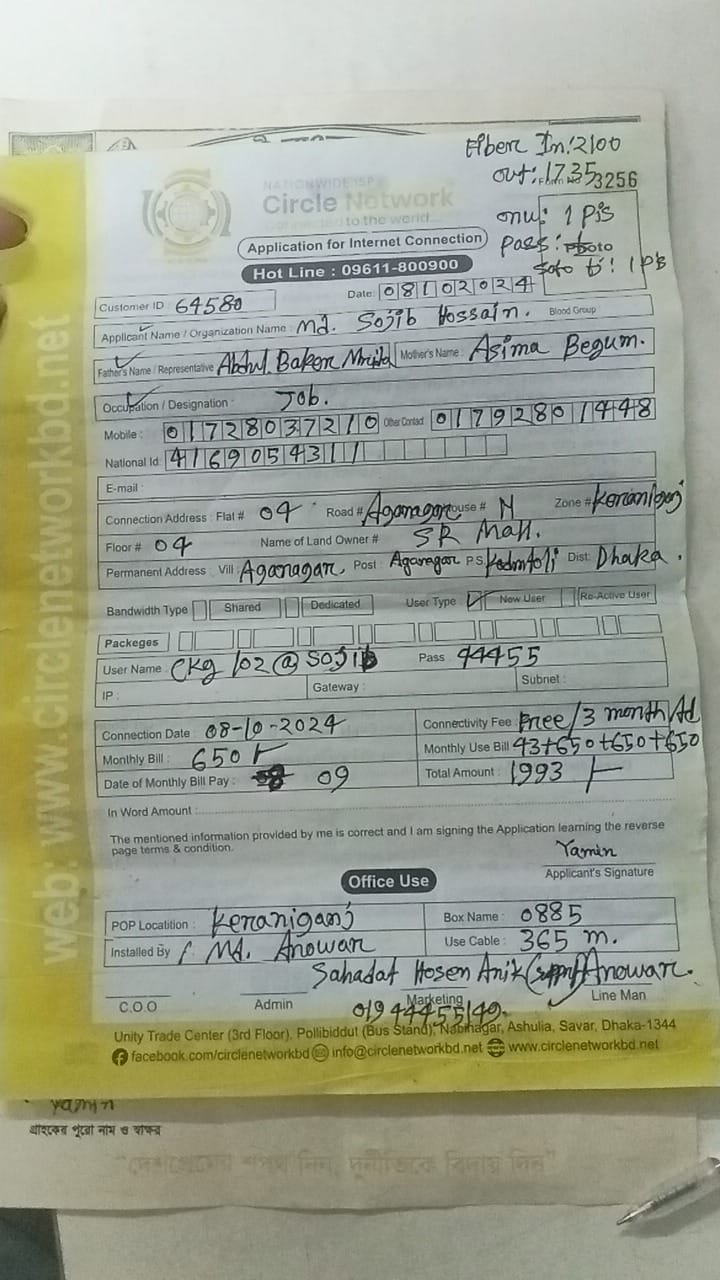 Fiber In:2100
out:1735
NATIONWIDE ISP
Form No 3256
Circle Network
to the world...
onu: 1 Pis
Application for Internet Connection
pass:
Hot Line : 09611-800900
Customer ID 64580
Date: 08102024
Applicant Name / Organization Name : Md. Sojib Hossain. Blood Group
Father's Name / Representative Abdul Baker Mother's Name : Asima Begum.
Occupation / Designation : Job.
Mobile : 01728037210 Other Contact 01792801448
National Id 4169054311
E-mail :
Connection Address : Flat # 04 Road # Aganagar House # N Zone # Keraniganj
Floor # 04 Name of Land Owner # SR Mall.
Permanent Address Vill : Aganagar, Post : Aganagar P.S Kodmtoli Dist: Dhaka.
Bandwidth Type Shared Dedicated User Type New User Re-Active User
Packeges
User Name : CKg 102@Sojib Pass 44455
IP : Gateway : Subnet :
Connection Date 08-10-2024 Connectivity Fee : Free/3 month Ad
Monthly Bill : 650/- Monthly Use Bill 43+650+650+650
Date of Monthly Bill Pay : 09 Total Amount : 1993/-
In Word Amount :
The mentioned information provided by me is correct and I am signing the Application learning the reverse
page terms & condition.
Yamin
Applicant's Signature
Office Use
POP Locatition : Keraniganj Box Name : 0885
Installed By Md. Anowar Use Cable : 365 m.
Sahadat Hosen Anik Anowar.
C.O.O Admin Marketing Line Man
01944455149
Unity Trade Center (3rd Floor), Pollibiddut (Bus Stand), Nabinagar, Ashulia, Savar, Dhaka-1344
facebook.com/circlenetworkbd info@circlenetworkbd.net www.circlenetworkbd.net
web: www.circlenetworkbd.net
Yamin
গ্রাহকের পুরো নাম ও স্বাক্ষর
"দেশপ্রেমের শপথ নিন, দুর্নীতিকে বিদায় দিন"